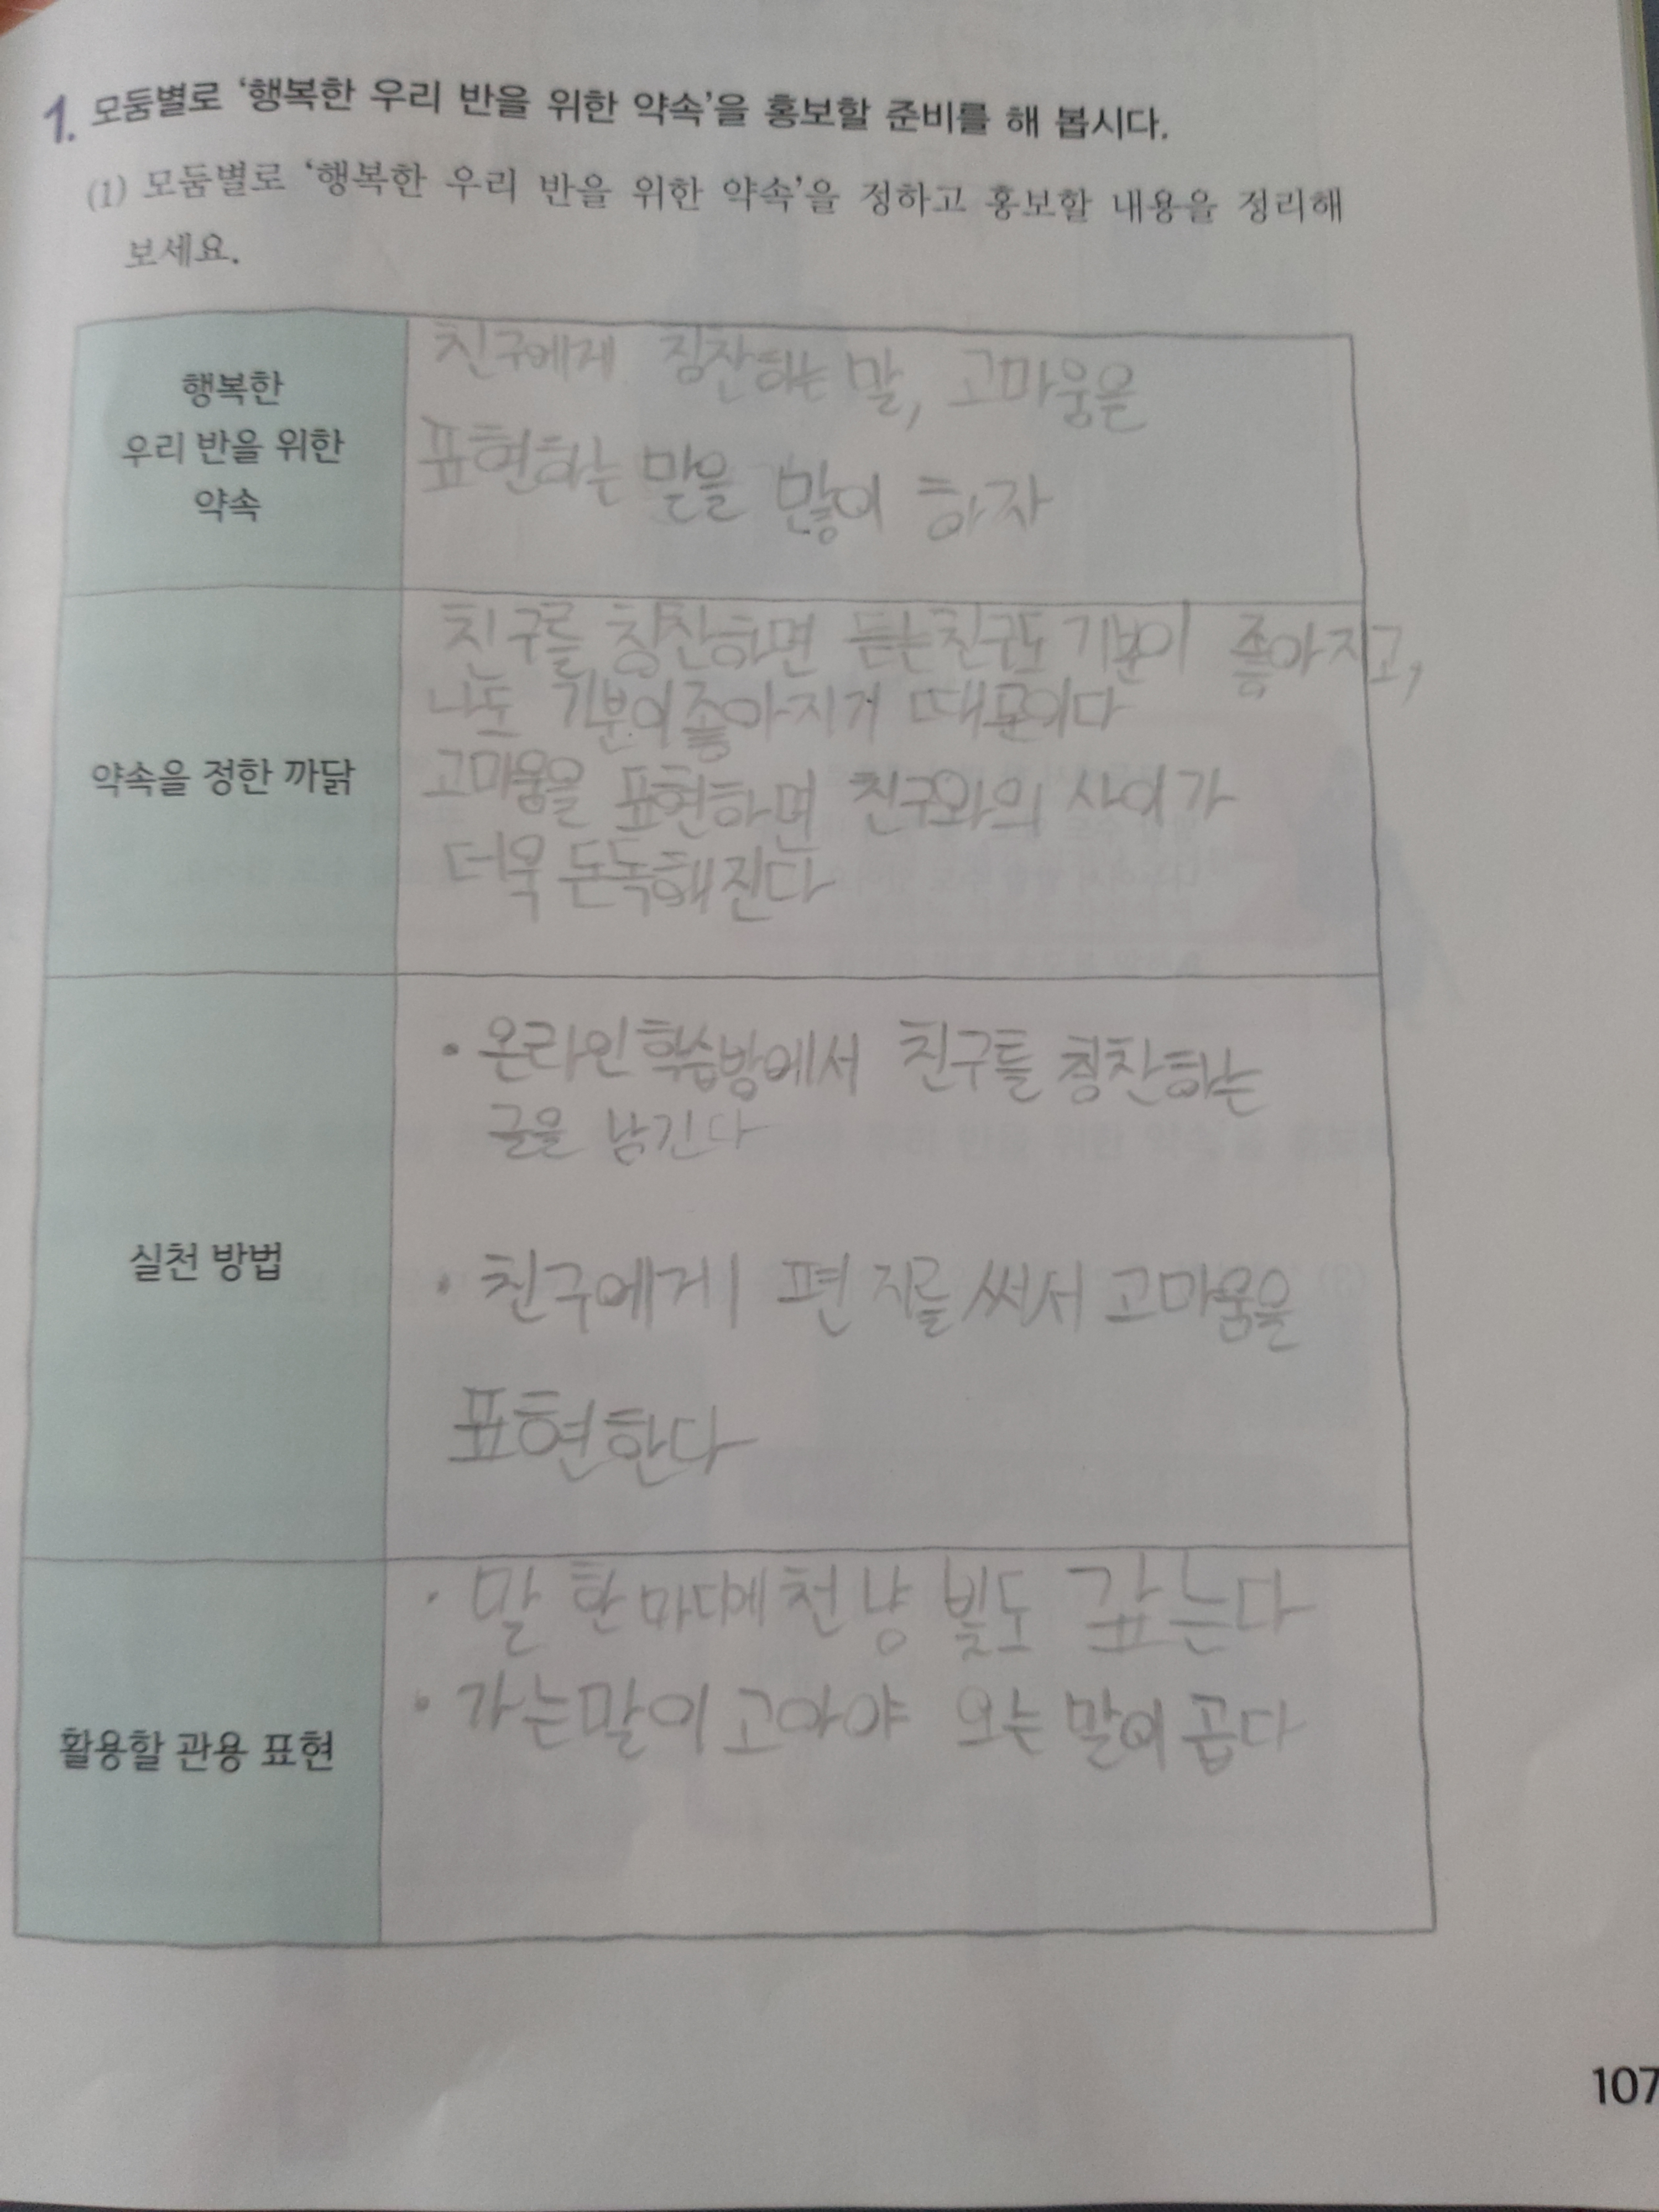 1. 모둠별로 '행복한 우리 반을 위한 약속'을 홍보할 준비를 해 봅시다.
(1) 모둠별로 '행복한 우리 반을 위한 약속'을 정하고 홍보할 내용을 정리해
보세요.
행복한
우리 반을 위한
약속
친구에게 칭찬하는 말, 고마움을
표현하는 말을 많이 하자
약속을 정한 까닭
친구를 칭찬하면 듣는친구도 기분이 좋아지고,
나도 기분이좋아지기 때문이다
고마움을 표현하면 친구와의 사이가
더욱 돈독해진다
실천 방법
• 온라인학습방에서 친구를 칭찬하는
글을 남긴다
• 친구에게 편지를 써서 고마움을
표현한다
활용할 관용 표현
• 말 한마디에 천냥 빚도 갚는다
• 가는말이 고아야 오는 말이 곱다
107